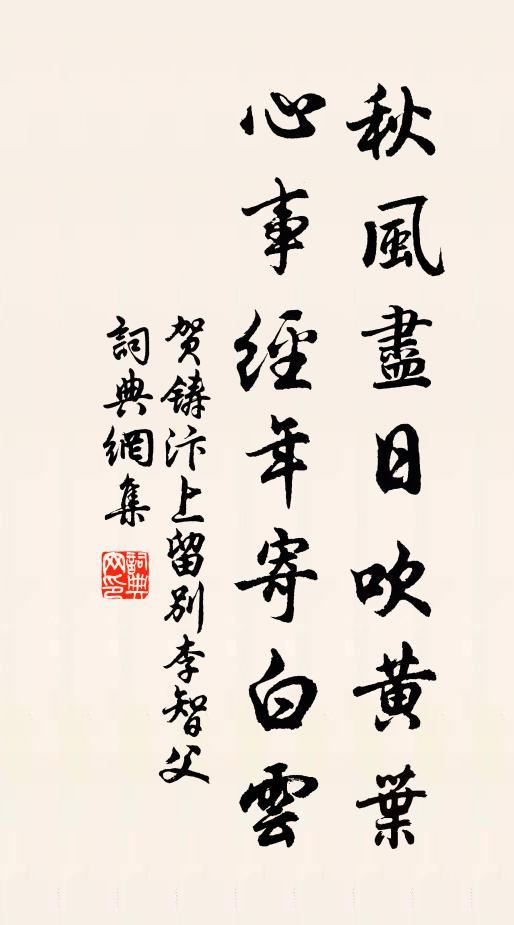 秋風盡日吹黄葉
心事經年寄白雲
贺鑄汴上留别李智父
詞典網集
詞典网印